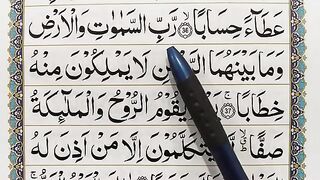 عَطَآءً حِسَابًا ۝٣٦ رَّبِّ السَّمٰوٰتِ وَالْاَرْضِ
وَمَا بَيْنَهُمَا لَا يَمْلِكُوْنَ مِنْهُ
خِطَابًا ۝٣٧ يَقُوْمُ الرُّوْحُ وَالْمَلٰٓئِكَةُ
صَفًّا يَتَكَلَّمُوْنَ اِلَّا مَنْ اَذِنَ لَهُ